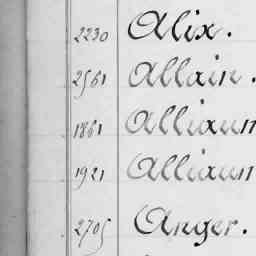 2230 Alix.
2561 Allain.
1861 Alliaum
1921 Alliaum
2705 Anger.